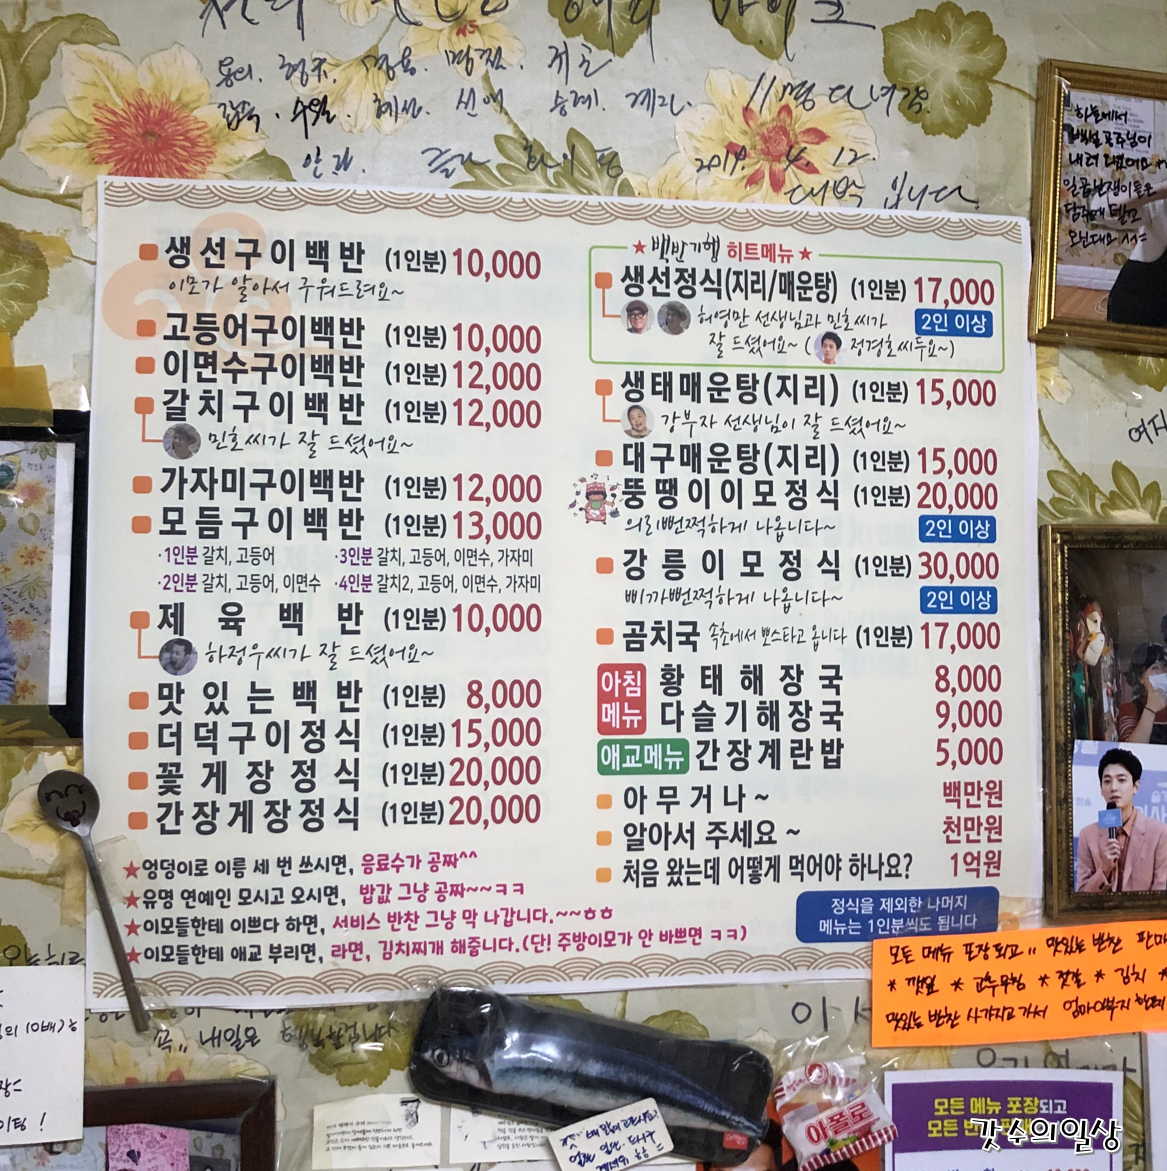 용덕. 형주. 명용. 명진. 귀순
수일. 혜선. 신애 승례. 계자. 11명 다녀감.
2019. 4. 12.
대박 입니다
생선구이백반 (1인분) 10,000
이모가 알아서 구워드려요~
고등어구이백반 (1인분) 10,000
이면수구이백반 (1인분) 12,000
갈치구이백반 (1인분) 12,000
민호씨가 잘 드셨어요~
가자미구이백반 (1인분) 12,000
모듬구이백반 (1인분) 13,000
·1인분 갈치, 고등어 ·3인분 갈치, 고등어, 이면수, 가자미
·2인분 갈치, 고등어, 이면수 ·4인분 갈치2, 고등어, 이면수, 가자미
제육백반 (1인분) 10,000
하정우씨가 잘 드셨어요~
맛있는백반 (1인분) 8,000
더덕구이정식 (1인분) 15,000
꽃게장정식 (1인분) 20,000
간장게장정식 (1인분) 20,000
★백반기행 히트메뉴★
생선정식(지리/매운탕) (1인분) 17,000
허영만 선생님과 민호씨가 2인 이상
잘 드셨어요~ ( 정경호씨두요~)
생태매운탕(지리) (1인분) 15,000
강부자 선생님이 잘 드셨어요~
대구매운탕(지리) (1인분) 15,000
뚱땡이이모정식 (1인분) 20,000
의리뻔쩍하게 나옵니다~ 2인 이상
강릉이모정식 (1인분) 30,000
삐까뻔쩍하게 나옵니다~ 2인 이상
곰치국 속초에서 뽀스타고 옵니다 (1인분) 17,000
아침메뉴 황태해장국 8,000
다슬기해장국 9,000
애교메뉴 간장계란밥 5,000
아무거나~ 백만원
알아서 주세요~ 천만원
처음 왔는데 어떻게 먹어야 하나요? 1억원
★엉덩이로 이름 세 번 쓰시면, 음료수가 공짜^^
★유명 연예인 모시고 오시면, 밥값 그냥 공짜~~ㅋㅋ
★이모들한테 이쁘다 하면, 서비스 반찬 그냥 막 나갑니다.~~ㅎㅎ
★이모들한테 애교 부리면, 라면, 김치찌개 해줍니다.(단! 주방이모가 안 바쁘면 ㅋㅋ)
정식을 제외한 나머지
메뉴는 1인분씩도 됩니다
하늘에서
백설공주님이
내려
모든 메뉴 포장되고,, 맛있는 반찬 판매
* 깻잎 * 고추무침 * 젓갈 * 김치 *
맛있는 반찬 사가지고 가서
내일은
아폴로
모든 메뉴 포장되고
모든 반
갓수의일상